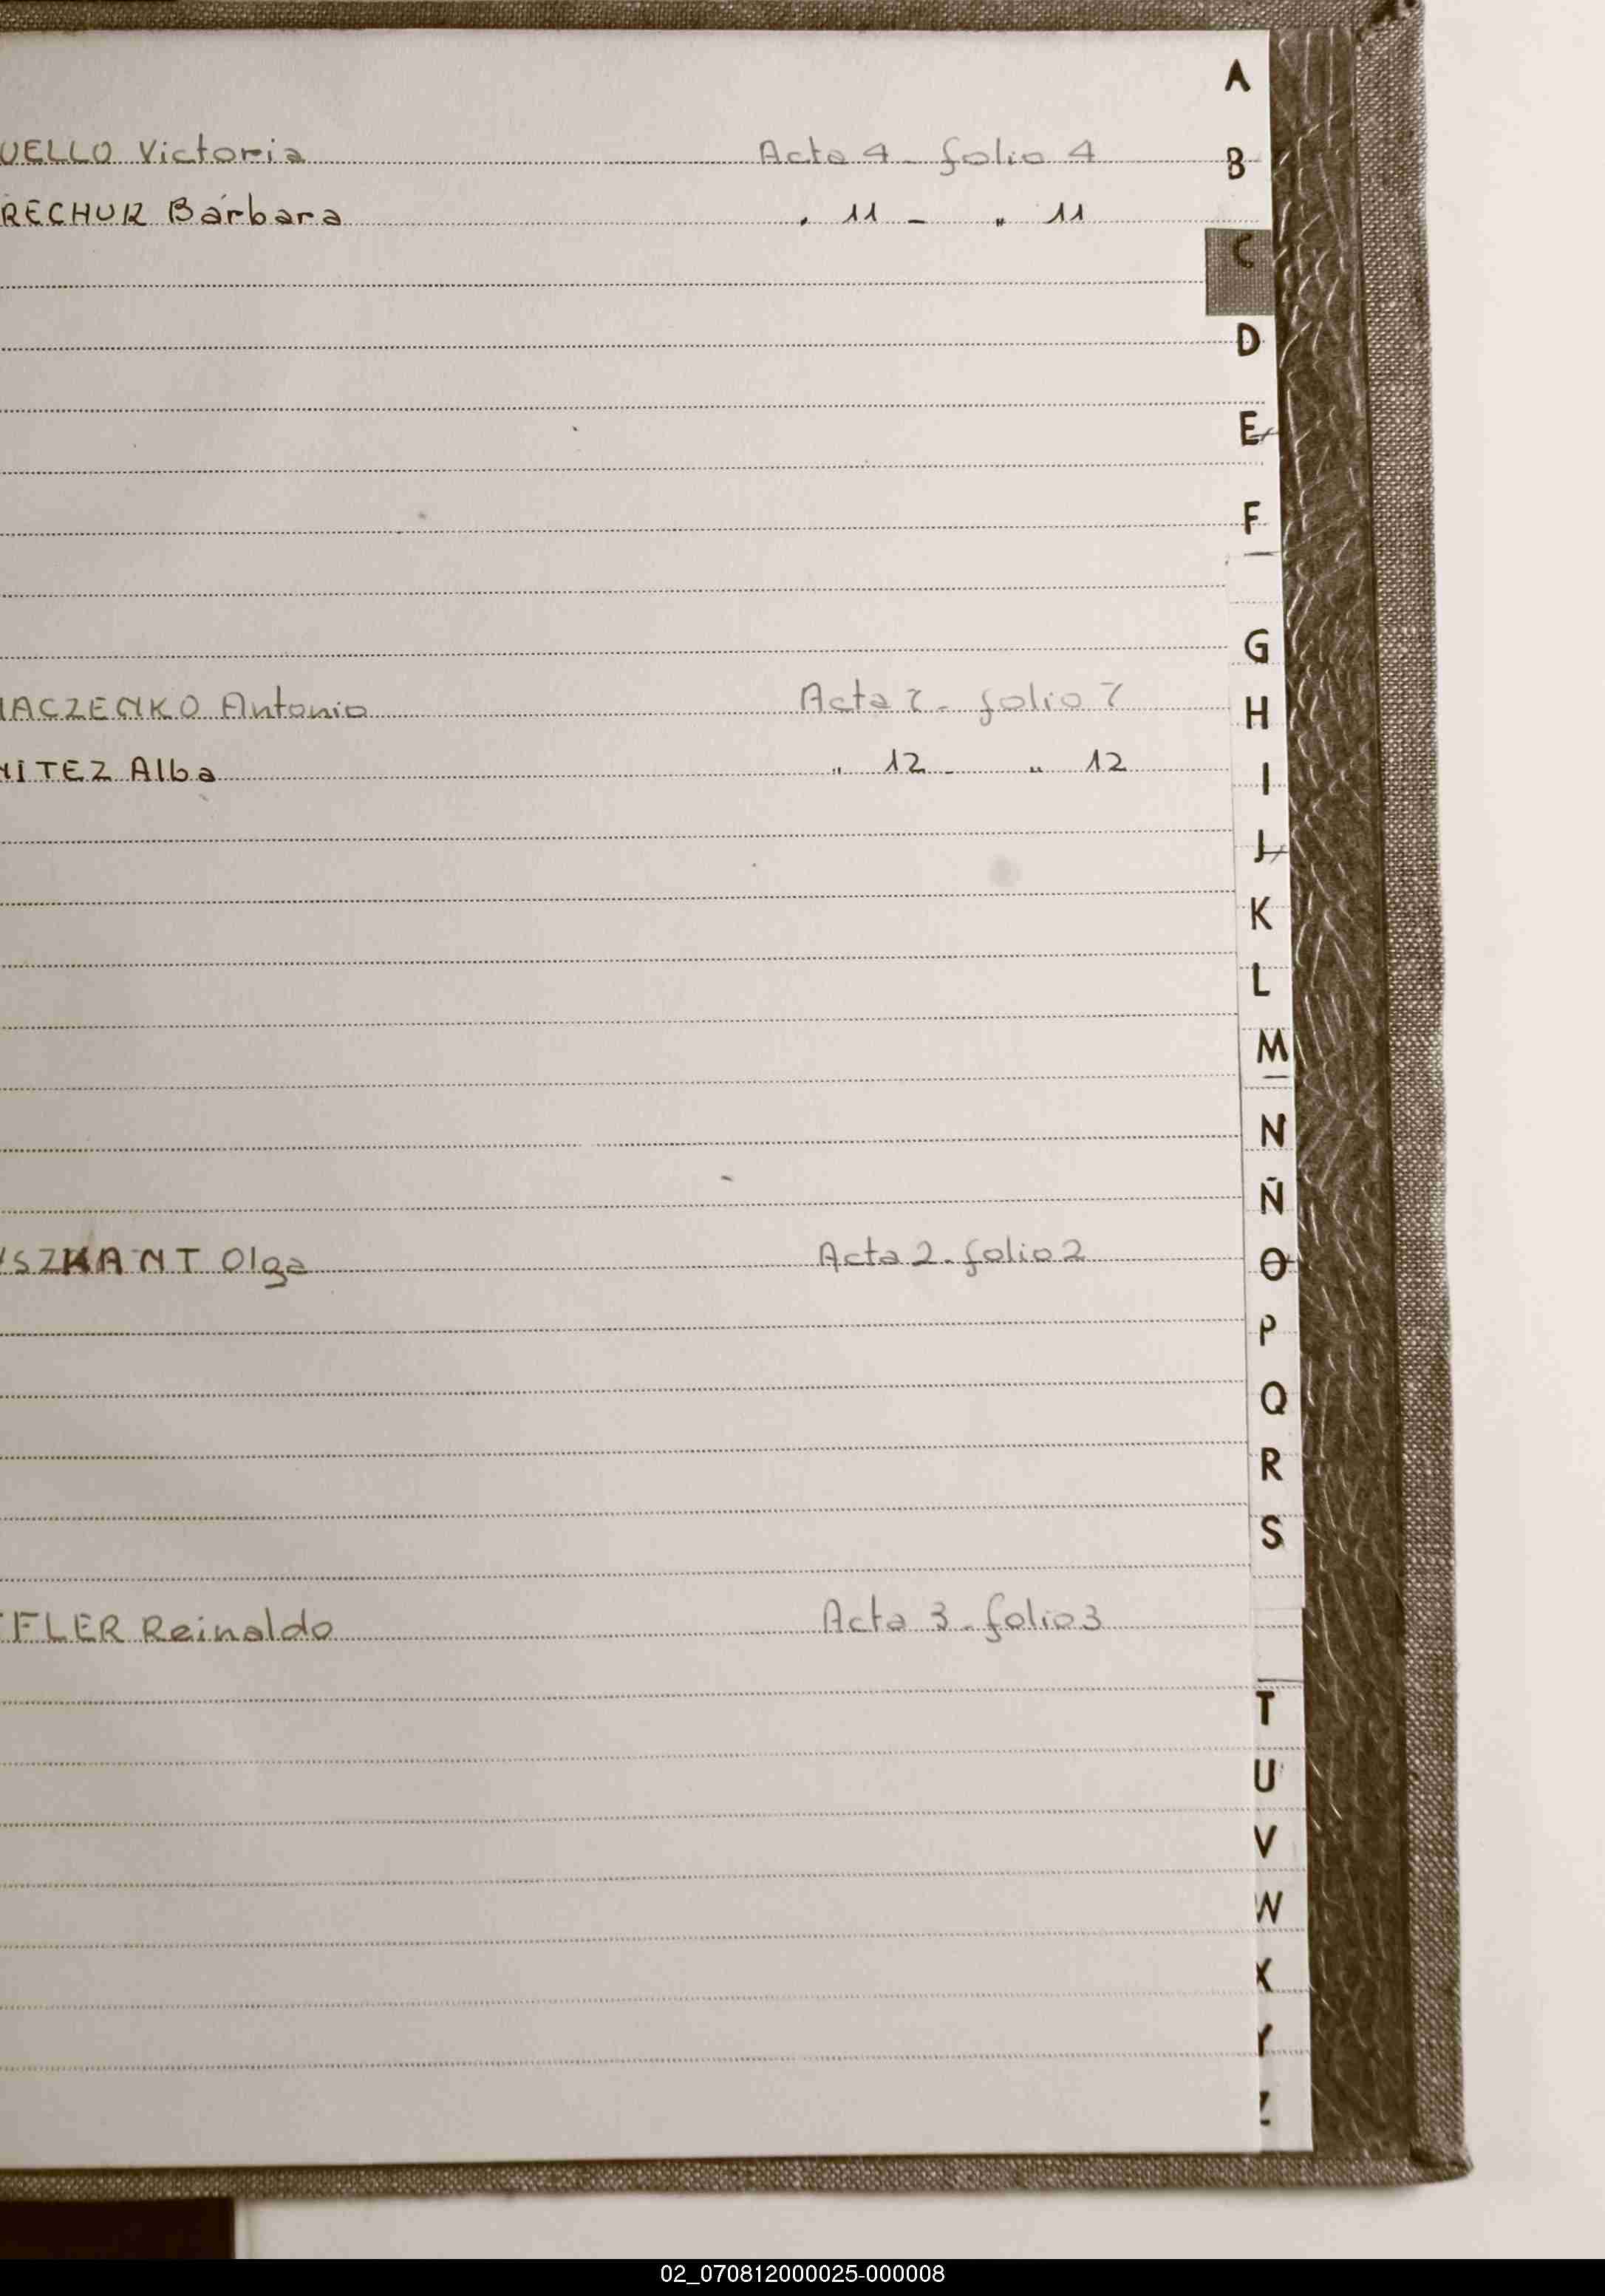 UELLO Victoria Acta 4 - folio 4
RECHUK Bárbara " 11 - " 11
ACZENKO Antonio Acta 7 - folio 7
NITEZ Alba " 12 - " 12
YSZKANT Olga Acta 2 - folio 2
FLER Reinaldo Acta 3 - folio 3
A
B
C
D
E
F
G
H
I
J
K
L
M
N
Ñ
O
P
Q
R
S
T
U
V
W
X
Y
Z
02_070812000025-000008